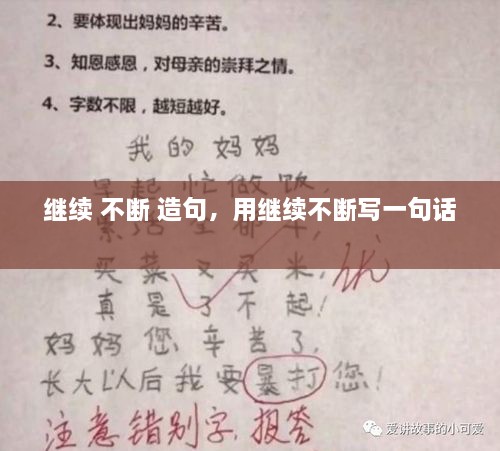 2、要体现出妈妈的辛苦。
3、知恩感恩，对母亲的崇拜之情。
4、字数不限，越短越好。
我的妈妈
继续 不断 造句，用继续不断写一句话
买菜又买米，
优
真是了不起！
妈妈您辛苦了，
长大以后我要暴打您！
注意错别字，报答
爱讲故事的小可爱